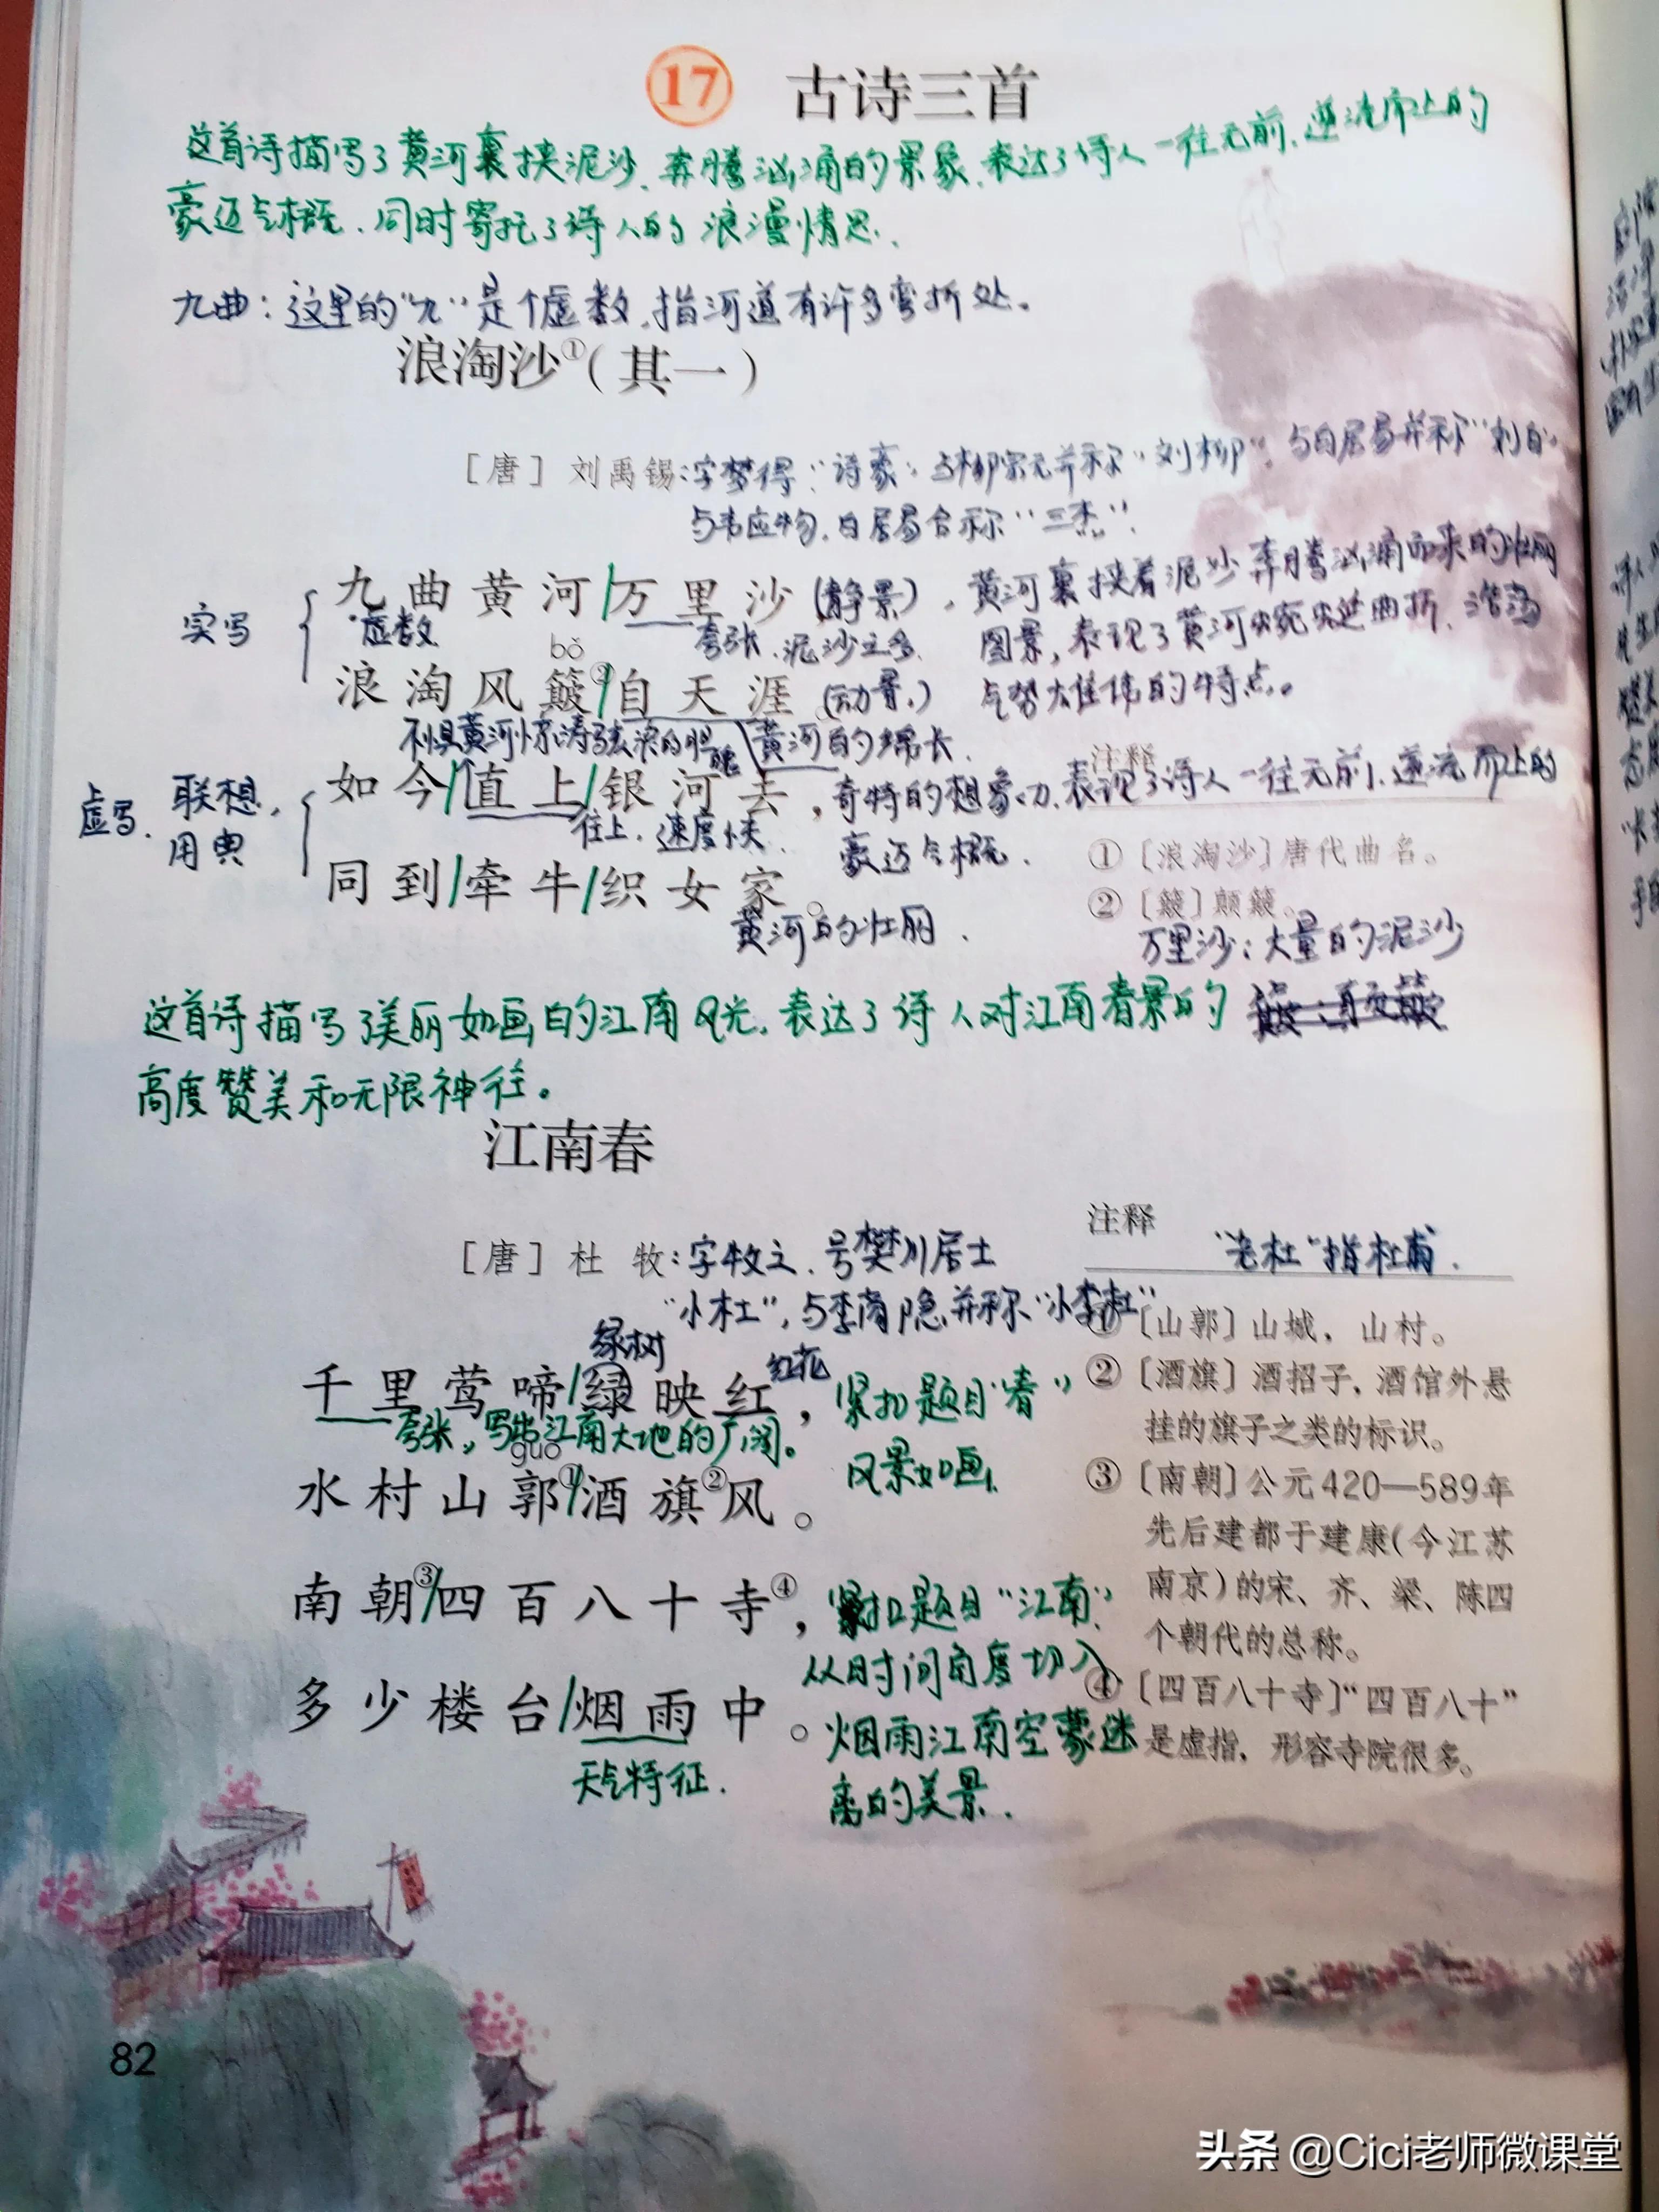 17 古诗三首
这首诗描写了黄河裹挟泥沙、奔腾汹涌的景象，表达了诗人一往无前、逆流而上的
豪迈气概，同时寄托了诗人的浪漫情思。
九曲：这里的“九”是个虚数，指河道有许多弯折处。
浪淘沙①（其一）
［唐］刘禹锡：字梦得，“诗豪”，与柳宗元并称“刘柳”，与白居易并称“刘白”
与韦应物、白居易合称“三杰”．
九曲黄河/万里沙(静景)，黄河裹挟着泥沙奔腾汹涌而来的壮丽
实写
虚数
夸张、泥沙之多
图景，表现了黄河蜿蜒曲折、浩荡
bǒ
浪淘风簸②/自天涯(动景)
气势大雄伟的特点。
不惧黄河惊涛骇浪的胆魄
黄河的绵长
注释
虚写．
联想，
用典
如今/值上/银河去，奇特的想象力，表现了诗人一往无前、逆流而上的
往上，速度快
豪迈气概．
①［浪淘沙］唐代曲名。
同到/牵牛/织女家。
②［簸］颠簸。
黄河的壮丽．
万里沙：大量的泥沙
这首诗描写了美丽如画的江南风光，表达了诗人对江南春景的
高度赞美和无限神往。
江南春
注释
“老杜”指杜甫．
［唐］杜 牧：字牧之，号樊川居士
“小杜”，与李商隐并称“小李杜”
绿树
红花
①［山郭］山城，山村。
千里莺啼/绿映红，紧扣题目“春”
②［酒旗］酒招子，酒馆外悬
挂的旗子之类的标识。
夸张，写出江南大地的广阔。
风景如画
guō
水村山郭①/酒旗②风。
③［南朝］公元420—589年
先后建都于建康（今江苏
南京）的宋、齐、梁、陈四
个朝代的总称。
南朝③/四百八十寺④，紧扣题目“江南”
从时间角度切入
④［四百八十寺］“四百八十”
是虚指，形容寺院很多。
多少楼台/烟雨中。烟雨江南空蒙迷
离的美景．
天气特征．
82
头条 @Cici老师微课堂